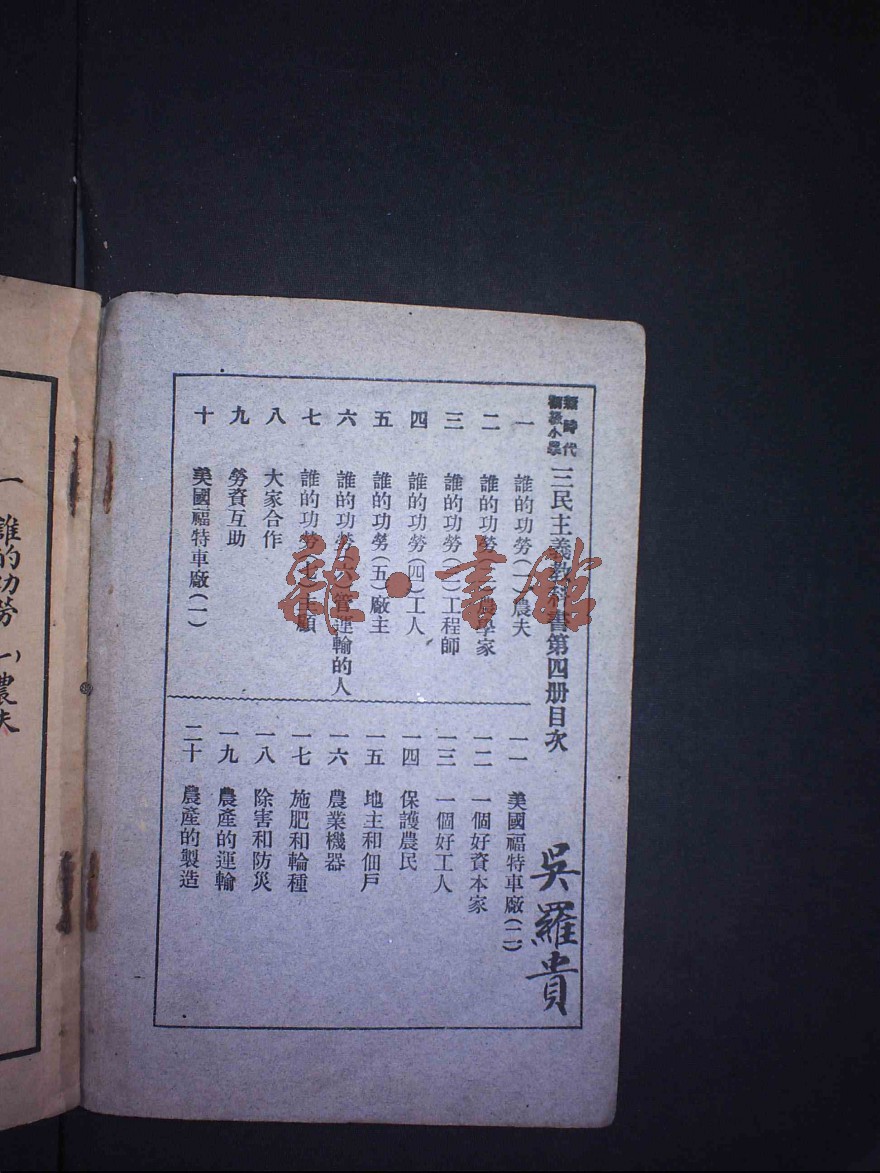 新時代
初級小學
三民主義教科書第四册目次
一 誰的功勞(一)農夫
二 誰的功勞(二)農學家
三 誰的功勞(三)工程師
四 誰的功勞(四)工人
五 誰的功勞(五)廠主
六 誰的功勞(六)管運輸的人
七 誰的功勞(七)主顧
八 大家合作
九 勞資互助
十 美國福特車廠(一)
一一 美國福特車廠(二)
一二 一個好資本家
一三 一個好工人
一四 保護農民
一五 地主和佃戶
一六 農業機器
一七 施肥和輪種
一八 除害和防災
一九 農產的運輸
二十 農產的製造
吳羅貴
雜·書館
一 誰的功勞 一)農夫